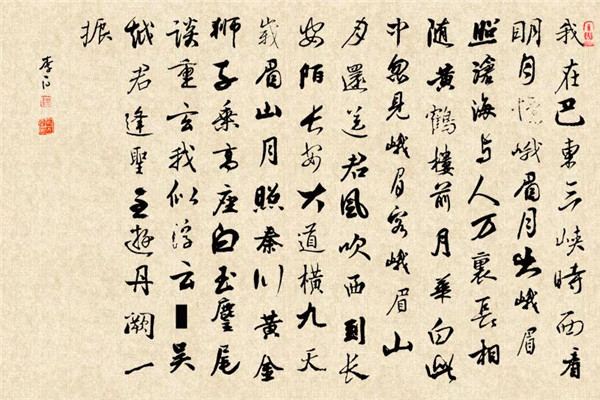 我在巴東三峡時西看
明月憶峨眉月出峨眉
照滄海与人万裏長相
随黄鶴樓前月華白此
中忽見峨眉客峨眉山
月還送君風吹西到长
安陌长安大道橫九天
峨眉山月照秦川黄金
狮子乘高座白玉麈尾
談重玄我似浮云吴
越君逢聖主遊丹阙一
振
李白